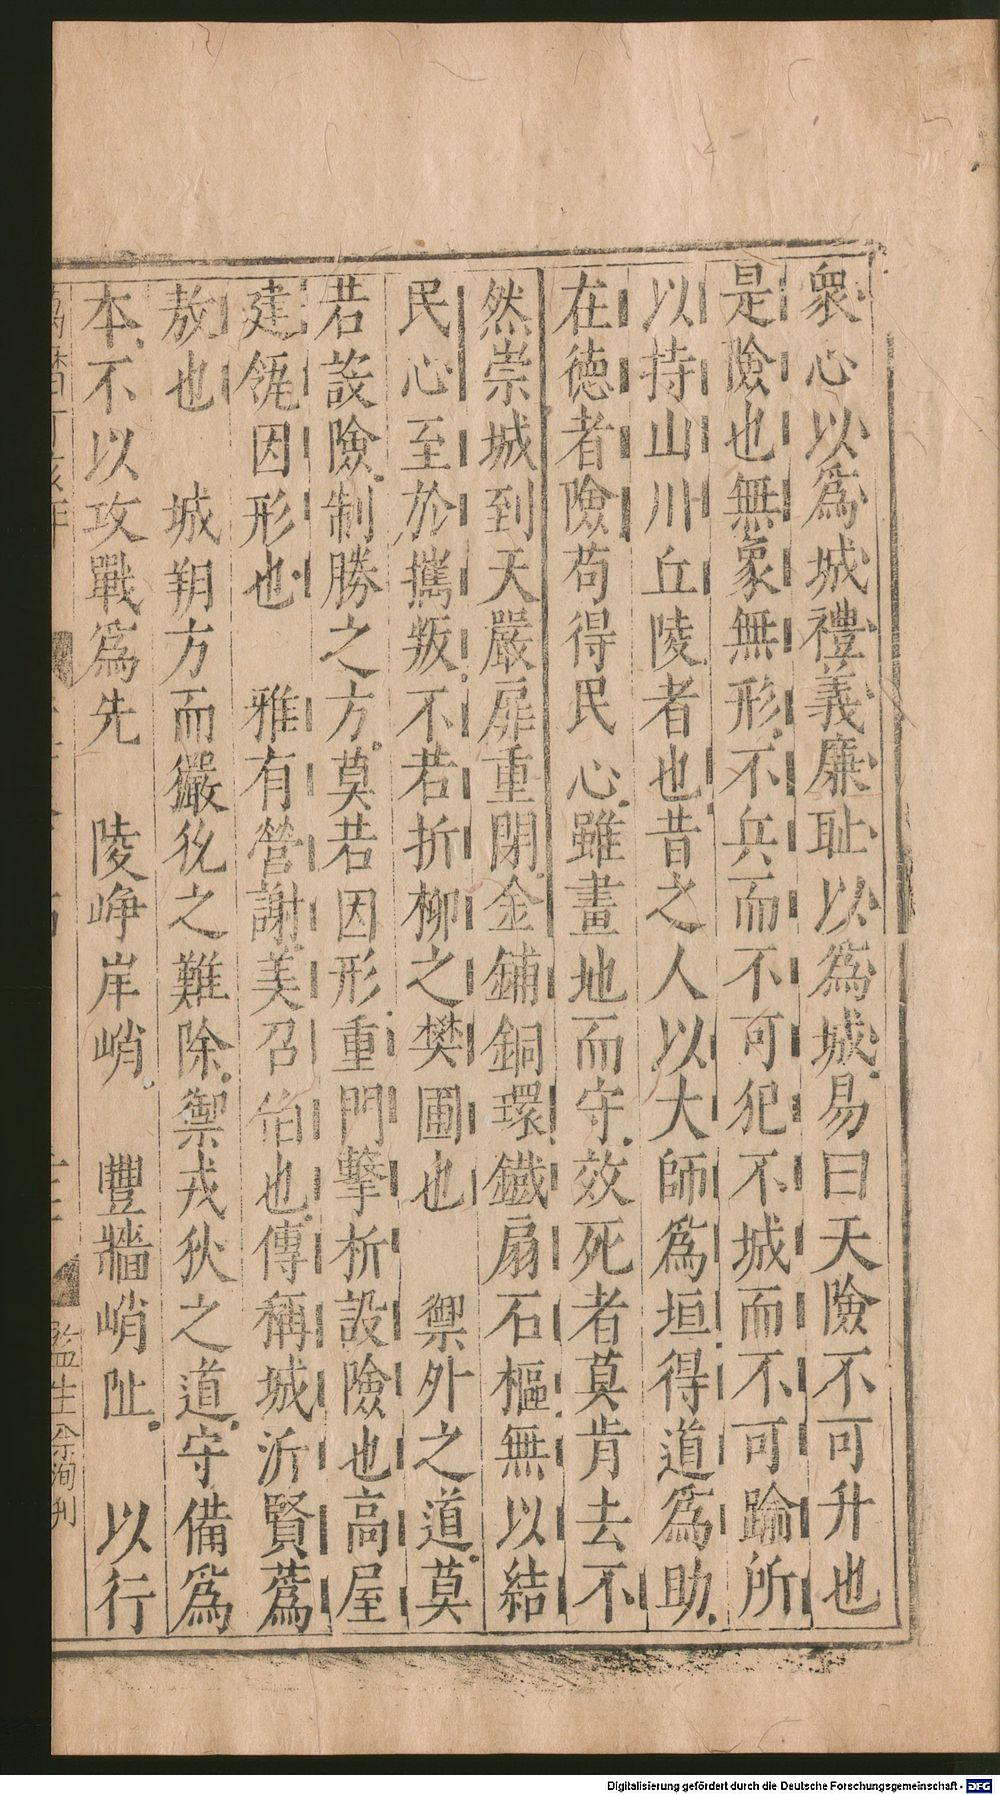 衆心以爲城禮義廉耻以爲城易曰天險不可升也
是險也無象無形不兵而不可犯不城而不可踰所
以持山川丘陵者也昔之人以大師爲垣得道爲助
在徳者險苟得民心雖畫地而守效死者莫肯去不
然崇城到天嚴扉重閉金鋪銅環鐵扇石樞無以結
民心至於攜叛不若折柳之樊圃也　禦外之道莫
若設險制勝之方莫若因形重門擊柝設險也高屋
建瓴因形也　雅有營謝美召伯也傳稱城沂賢蒍
敖也　城朔方而玁狁之難除禦戎狄之道守備爲
本不以攻戰爲先　陵崢岸峭　豐牆峭阯　以行
監生余洵刋
Digitalisierung gefördert durch die Deutsche Forschungsgemeinschaft - DFG